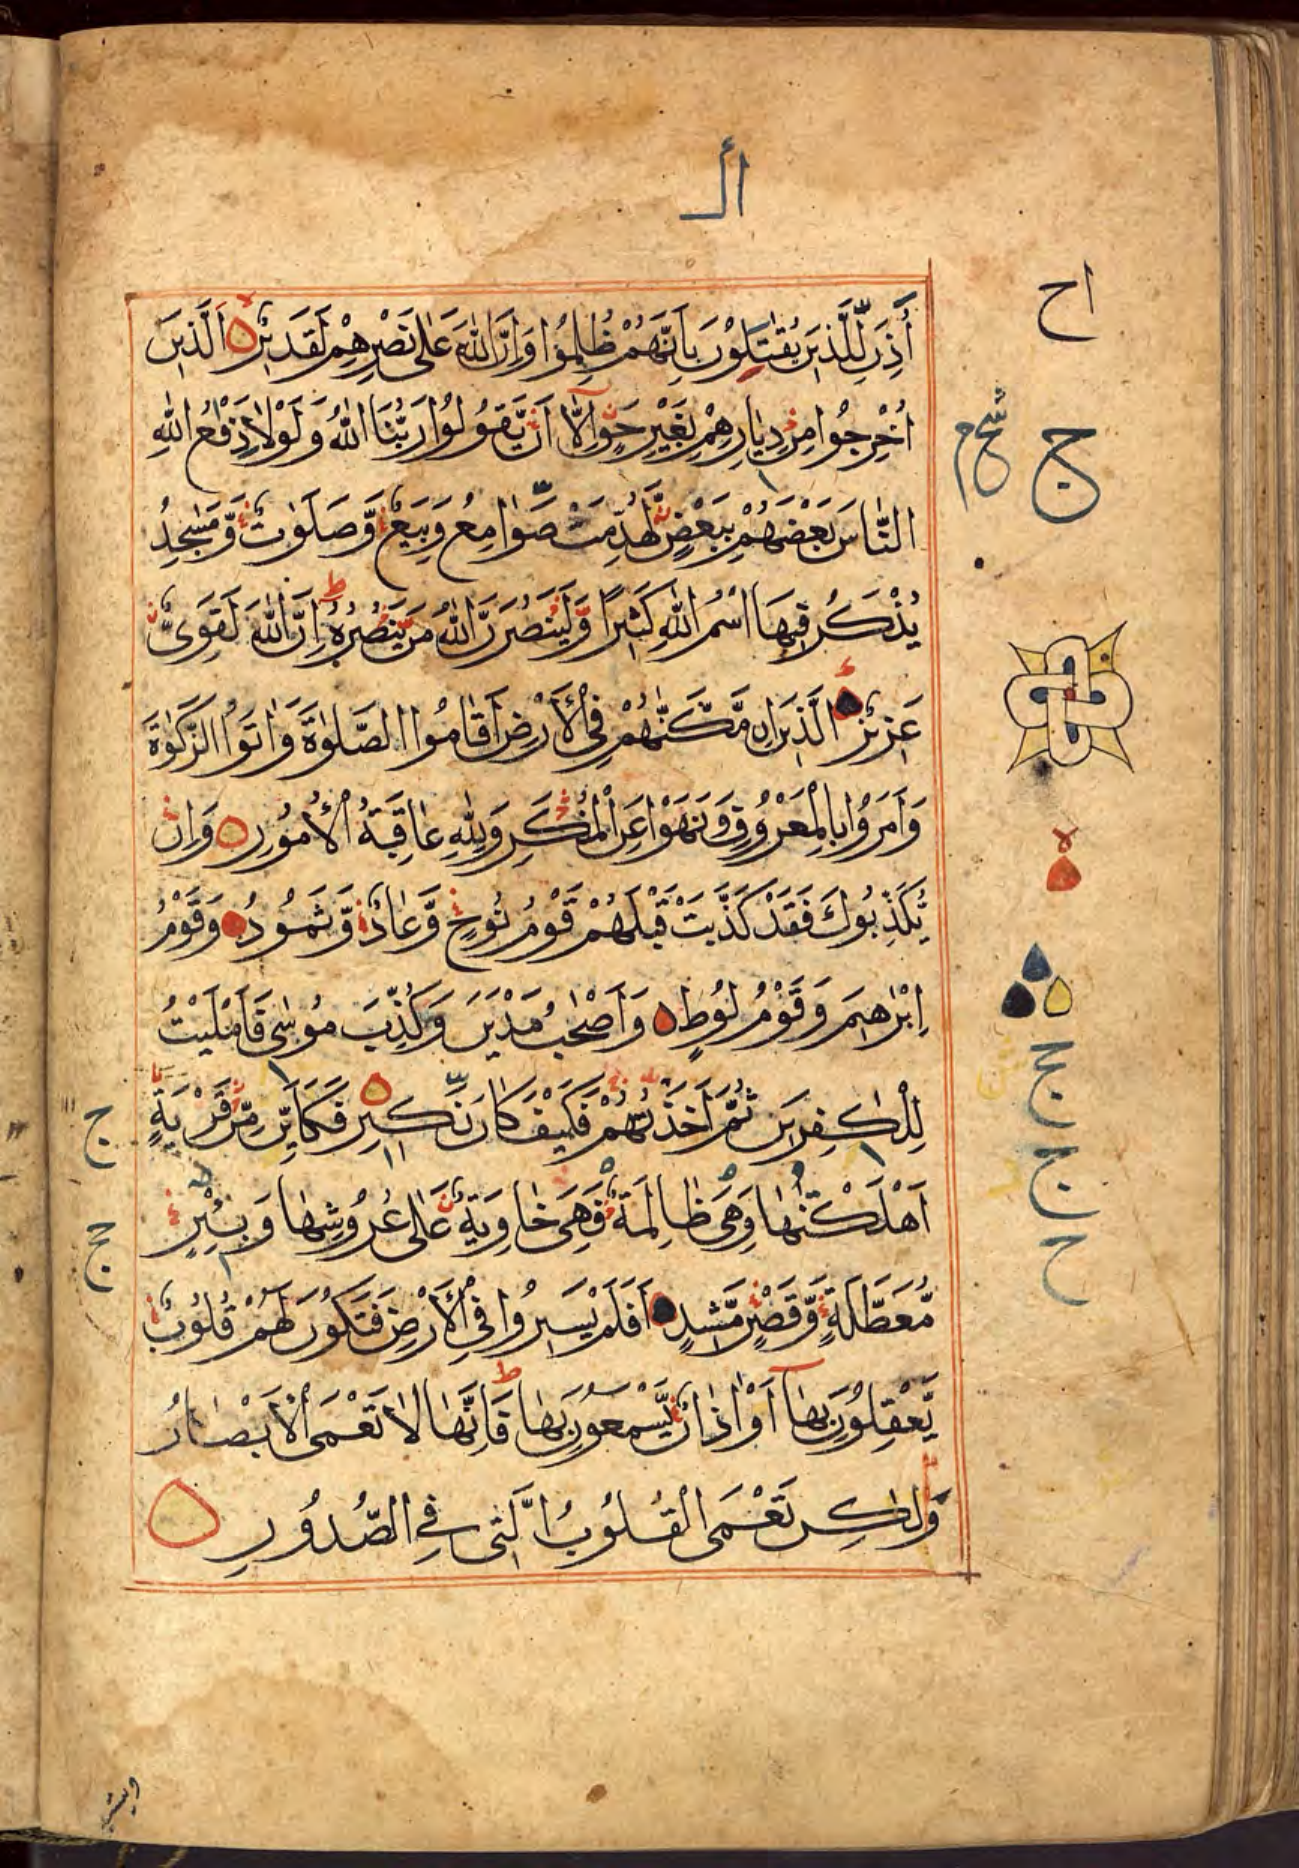 أُذِنَ لِلَّذِينَ يُقٰتَلُوْنَ بِاَنَّهُمْ ظُلِمُوْا وَاِنَّ اللّٰهَ عَلٰى نَصْرِهِمْ لَقَدِيْرٌ الَّذِيْنَ
اُخْرِجُوا مِنْ دِيَارِهِمْ بِغَيْرِ حَقٍّ اِلَّا اَنْ يَّقُوْلُوْا رَبُّنَا اللّٰهُ وَلَوْلَا دَفْعُ اللّٰهِ
النَّاسَ بَعْضَهُمْ بِبَعْضٍ لَّهُدِّمَتْ صَوَامِعُ وَبِيَعٌ وَّصَلَوٰتٌ وَّمَسٰجِدُ
يُذْكَرُ فِيْهَا اسْمُ اللّٰهِ كَثِيْرًا وَّلَيَنْصُرَنَّ اللّٰهُ مَنْ يَّنْصُرُهٗ ط اِنَّ اللّٰهَ لَقَوِىٌّ
عَزِيْزٌ الَّذِيْنَ اِنْ مَّكَّنّٰهُمْ فِى الْاَرْضِ اَقَامُوا الصَّلٰوةَ وَاٰتَوُا الزَّكٰوةَ
وَاَمَرُوْا بِالْمَعْرُوْفِ وَنَهَوْا عَنِ الْمُنْكَرِ وَلِلّٰهِ عَاقِبَةُ الْاُمُوْرِ وَاِنْ
يُّكَذِّبُوْكَ فَقَدْ كَذَّبَتْ قَبْلَهُمْ قَوْمُ نُوْحٍ وَّعَادٌ وَّثَمُوْدُ وَقَوْمُ
اِبْرٰهِيْمَ وَقَوْمُ لُوْطٍ وَاَصْحٰبُ مَدْيَنَ وَكُذِّبَ مُوْسٰى فَاَمْلَيْتُ
لِلْكٰفِرِيْنَ ثُمَّ اَخَذْتُهُمْ فَكَيْفَ كَانَ نَكِيْرِ فَكَاَيِّنْ مِّنْ قَرْيَةٍ
اَهْلَكْنٰهَا وَهِىَ ظَالِمَةٌ فَهِىَ خَاوِيَةٌ عَلٰى عُرُوْشِهَا وَبِئْرٍ
مُّعَطَّلَةٍ وَّقَصْرٍ مَّشِيْدٍ اَفَلَمْ يَسِيْرُوْا فِى الْاَرْضِ فَتَكُوْنَ لَهُمْ قُلُوْبٌ
يَّعْقِلُوْنَ بِهَا اَوْ اٰذَانٌ يَّسْمَعُوْنَ بِهَا ط فَاِنَّهَا لَا تَعْمَى الْاَبْصَارُ
وَلٰكِنْ تَعْمَى الْقُلُوْبُ الَّتِى فِى الصُّدُوْرِ
اح
ج
ج